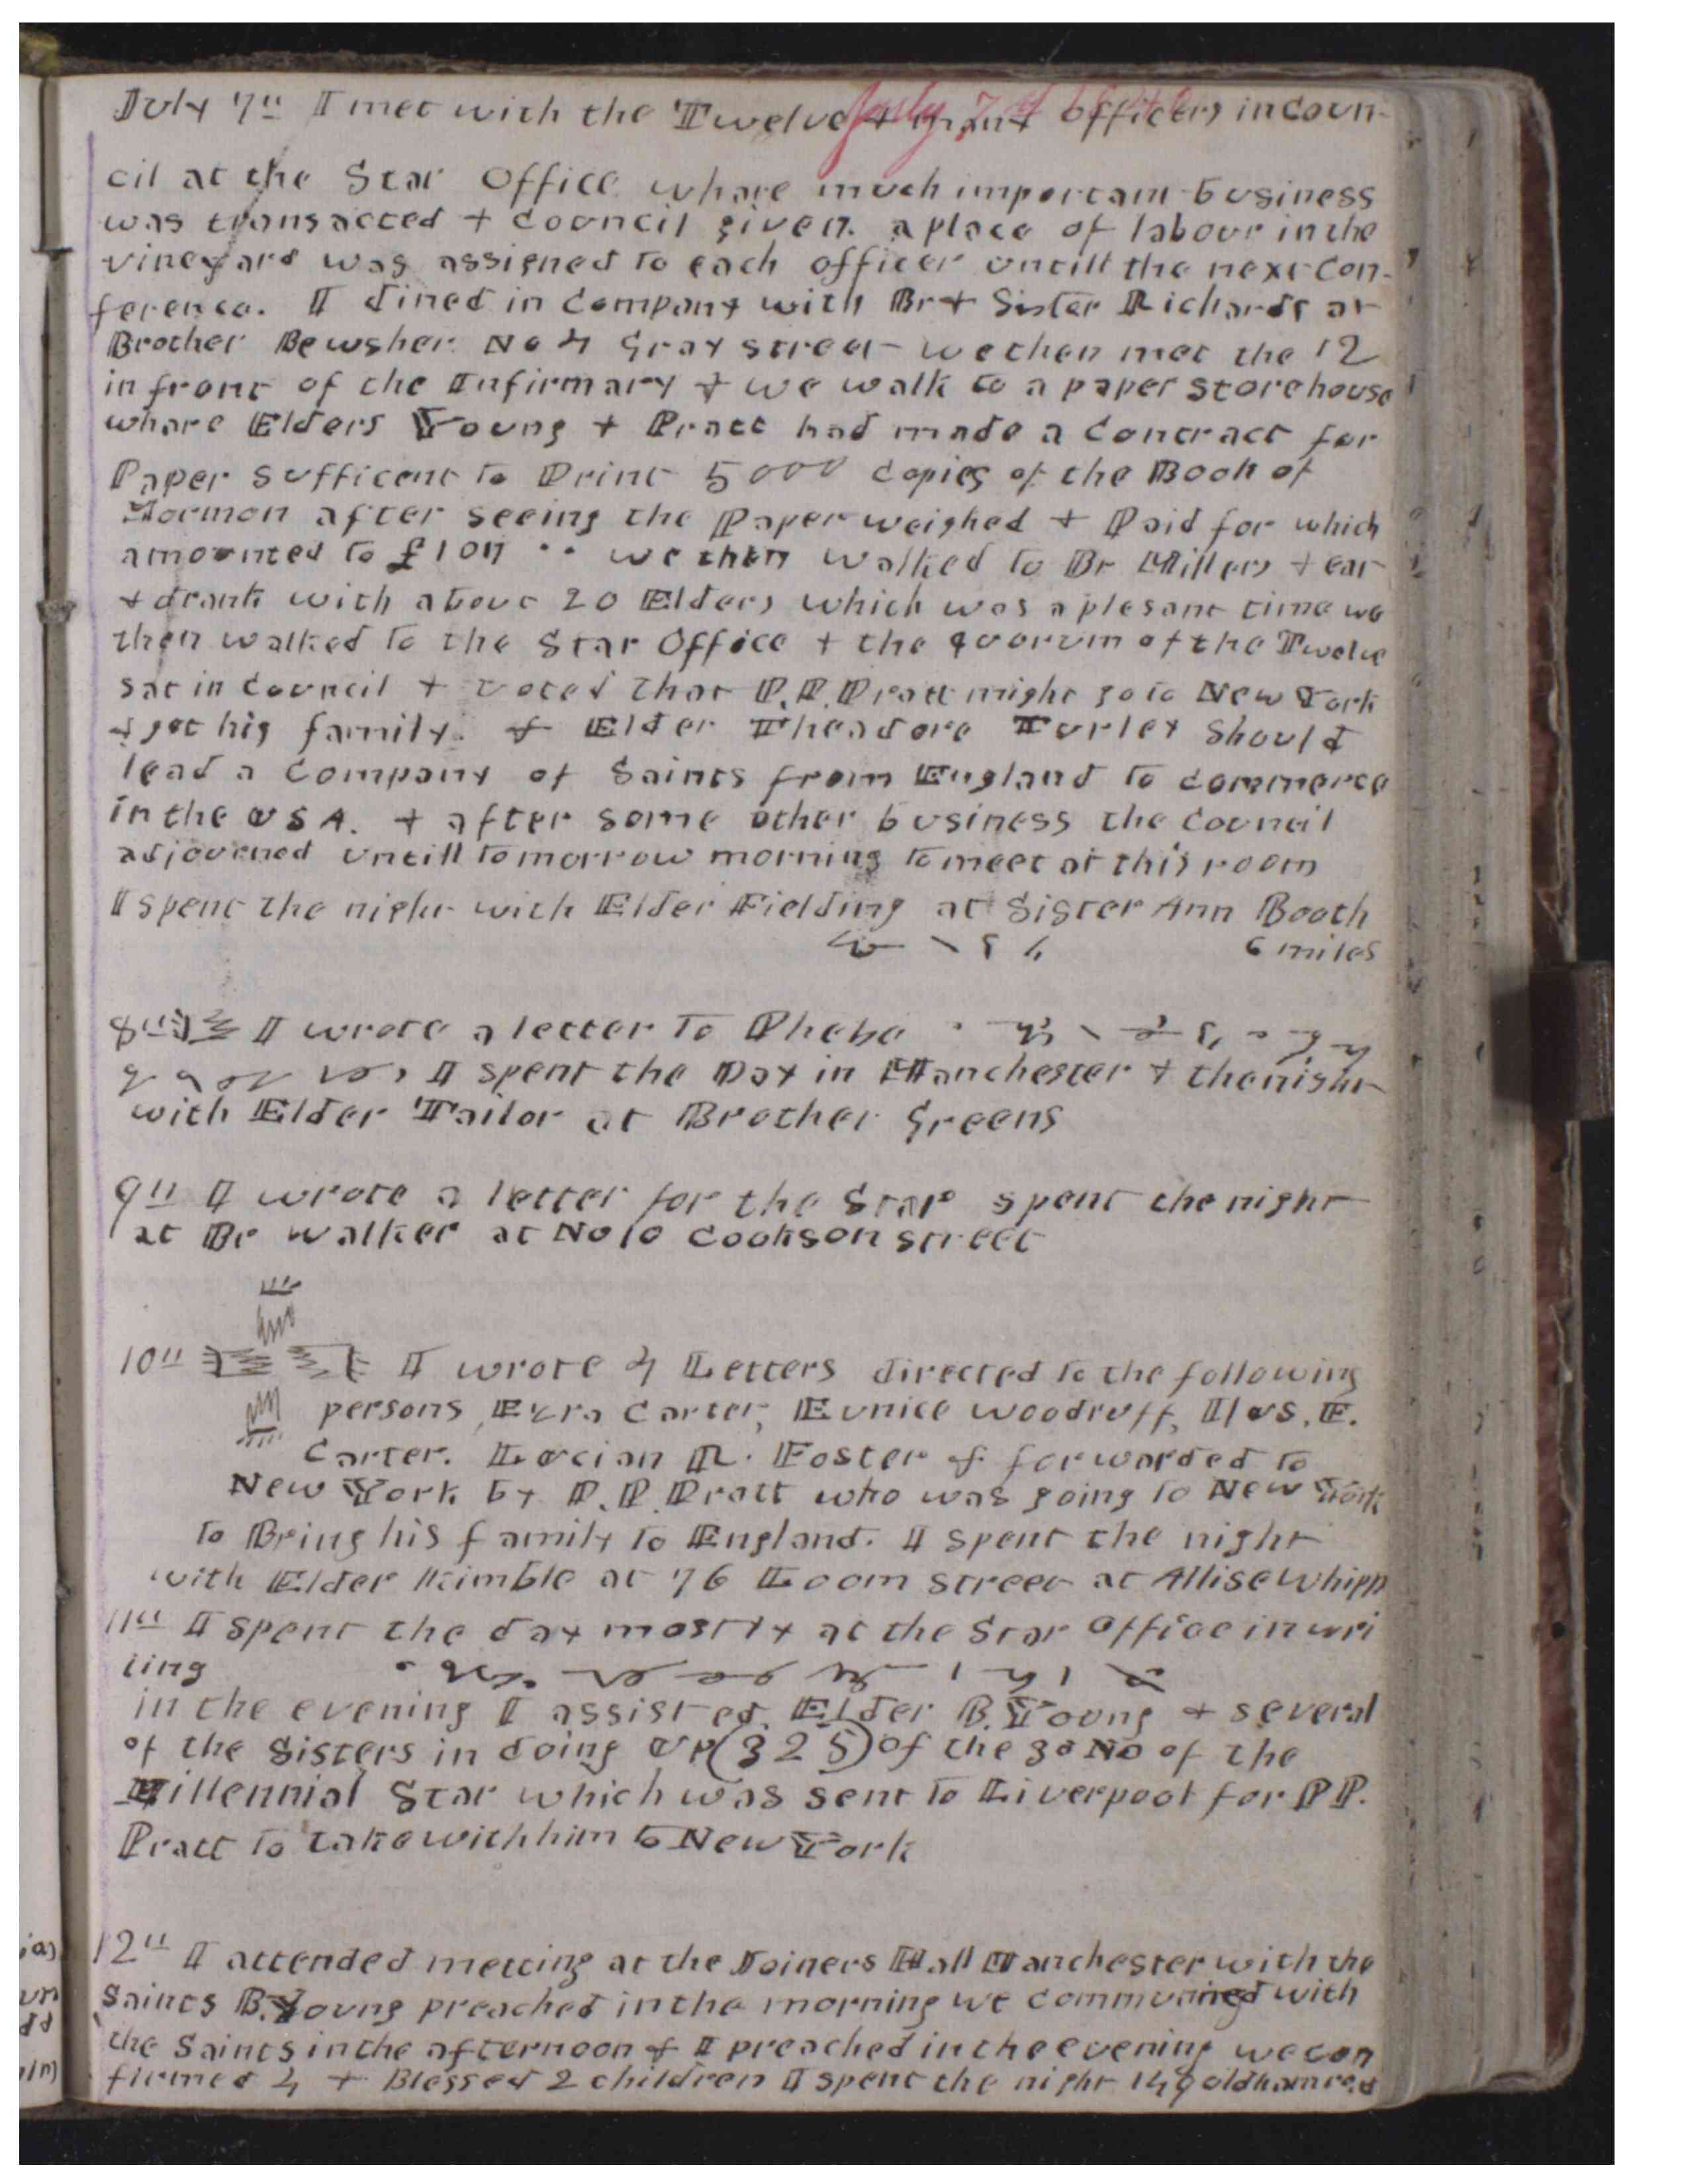 July 7th I met with the Twelve & many officers in Coun-
cil at the Star Office whare much important business
was transacted & Council given. a place of labour in the
vineyard was assigned to each officer untill the next Con-
ference. I dined in Company with Br & Sister Richards at
Brother Bewsher No 4 Gray street we then met the 12
in front of the Infirmary & we walk to a paper store house
whare Elders Young & Pratt had made a Contract for
Paper sufficent to Print 5000 Copies of the Book of
Mormon after seeing the Paper weighed & Paid for which
amounted to we then walked to Br Millers & eat
& drank with about 20 Elders which was a plesant time we
then walked to the Star Office & the quorum of the Twelve
sat in Council & voted that P.P. Pratt might go to New York
& get his family. & Elder Theadore Turley should
lead a Company of Saints from England to Commerce
in the USA. & after some other business the Council
adjouened untill tomorrow morning to meet at this room
I spent the night with Elder Fielding at Sister Ann Booth
6 miles
8th I wrote a letter to Phebe
I spent the Day in Manchester & the night
with Elder Tailor at Brother Greens
9th I wrote a letter for the Star spent the night
at Br Walker at No 10 Cookson street
10th I wrote 4 Letters directed to the following
persons Ezra Carter, Eunice Woodruff, Ilus. F.
Carter. Lucian R. Foster & forwarded to
New York by P.P. Pratt who was going to New York
to Bring his family to England. I spent the night
with Elder Kimble at 76 Loom street at Allise Whipp
11th I spent the day mostly at the Star Office in wri
ting
in the evening I assisted Elder B. Young & several
of the Sisters in doing up (325) of the 3d No of the
Millennial Star which was sent to Liverpool for PP.
Pratt to take with him to New York
12th I attended meeting at the Joiners Hall Manchester with the
Saints B. Young preached in the morning we communed with
the Saints in the afternoon & I preached in the evening we con
firmed 4 & Blessed 2 children I spent the night 149 oldham road